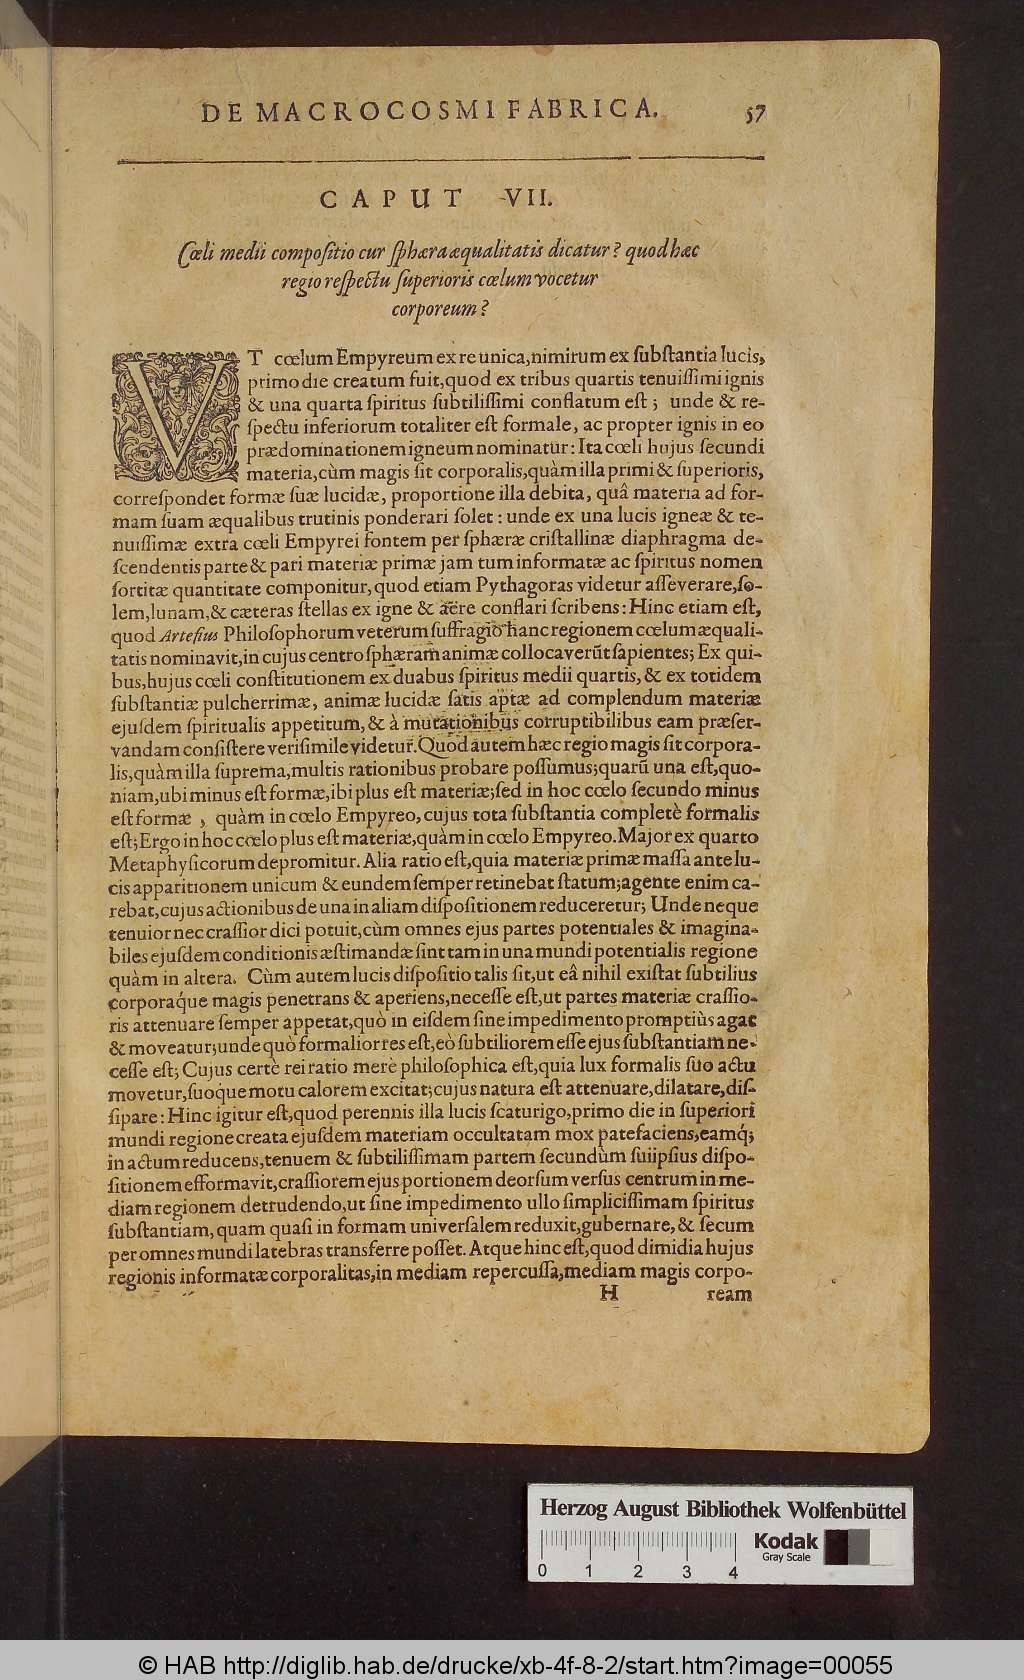 DE MACROCOSMI FABRICA. 57
CAPUT VII.
Cœli medii compoſitio cur ſphæra æqualitatis dicatur? quod hæc
regio reſpectu ſuperioris cœlum vocetur
corporeum?
VT cœlum Empyreum ex re unica, nimirum ex ſubſtantia lucis,
primo die creatum fuit, quod ex tribus quartis tenuiſſimi ignis
& una quarta ſpiritus ſubtiliſſimi conflatum eſt; unde & re-
ſpectu inferiorum totaliter eſt formale, ac propter ignis in eo
prædominationem igneum nominatur: Ita cœli hujus ſecundi
materia, cùm magis ſit corporalis, quàm illa primi & ſuperioris,
correſpondet formæ ſuæ lucidæ, proportione illa debita, quâ materia ad for-
mam ſuam æqualibus trutinis ponderari ſolet: unde ex una lucis igneæ & te-
nuiſſimæ extra cœli Empyrei fontem per ſphæræ criſtallinæ diaphragma de-
ſcendentis parte & pari materiæ primæ jam tum informatæ ac ſpiritus nomen
ſortitæ quantitate componitur, quod etiam Pythagoras videtur aſſeverare, ſo-
lem, lunam, & cæteras ſtellas ex igne & aëre conflari ſcribens: Hinc etiam eſt,
quod Arteſius Philoſophorum veterum ſuffragio hanc regionem cœlum æquali-
tatis nominavit, in cujus centro ſphæram animæ collocaverūt ſapientes; Ex qui-
bus, hujus cœli conſtitutionem ex duabus ſpiritus medii quartis, & ex totidem
ſubſtantiæ pulcherrimæ, animæ lucidæ ſatis aptæ ad complendum materiæ
ejuſdem ſpiritualis appetitum, & à mutationibus corruptibilibus eam præſer-
vandam conſiſtere veriſimile videtur. Quod autem hæc regio magis ſit corpora-
lis, quàm illa ſuprema, multis rationibus probare poſſumus; quarū una eſt, quo-
niam, ubi minus eſt formæ, ibi plus eſt materiæ; ſed in hoc cœlo ſecundo minus
eſt formæ, quàm in cœlo Empyreo, cujus tota ſubſtantia completè formalis
eſt; Ergo in hoc cœlo plus eſt materiæ, quàm in cœlo Empyreo. Major ex quarto
Metaphyſicorum depromitur. Alia ratio eſt, quia materiæ primæ maſſa ante lu-
cis apparitionem unicum & eundem ſemper retinebat ſtatum; agente enim ca-
rebat, cujus actionibus de una in aliam diſpoſitionem reduceretur; Unde neque
tenuior nec craſſior dici potuit, cùm omnes ejus partes potentiales & imagina-
biles ejuſdem conditionis æſtimandæ ſint tam in una mundi potentialis regione
quàm in altera. Cùm autem lucis diſpoſitio talis ſit, ut eâ nihil exiſtat ſubtilius
corporaq́ue magis penetrans & aperiens, neceſſe eſt, ut partes materiæ craſſio-
ris attenuare ſemper appetat, quò in eiſdem ſine impedimento promptiùs agat
& moveatur; unde quò formalior res eſt, eò ſubtiliorem eſſe ejus ſubſtantiam ne-
ceſſe eſt; Cujus certè rei ratio merè philoſophica eſt, quia lux formalis ſuo actu
movetur, ſuoq́ue motu calorem excitat; cujus natura eſt attenuare, dilatare, diſ-
ſipare: Hinc igitur eſt, quod perennis illa lucis ſcaturigo, primo die in ſuperiori
mundi regione creata ejuſdem materiam occultatam mox patefaciens, eamq́;
in actum reducens, tenuem & ſubtiliſſimam partem ſecundùm ſuiipſius diſpo-
ſitionem efformavit, craſſiorem ejus portionem deorſum verſus centrum in me-
diam regionem detrudendo, ut ſine impedimento ullo ſimpliciſſimam ſpiritus
ſubſtantiam, quam quaſi in formam univerſalem reduxit, gubernare, & ſecum
per omnes mundi latebras transferre poſſet. Atque hinc eſt, quod dimidia hujus
regionis informatæ corporalitas, in mediam repercuſſa, mediam magis corpo-
H ream
Herzog August Bibliothek Wolfenbüttel
Kodak
Gray Scale
0 1 2 3 4
© HAB http://diglib.hab.de/drucke/xb-4f-8-2/start.htm?image=00055